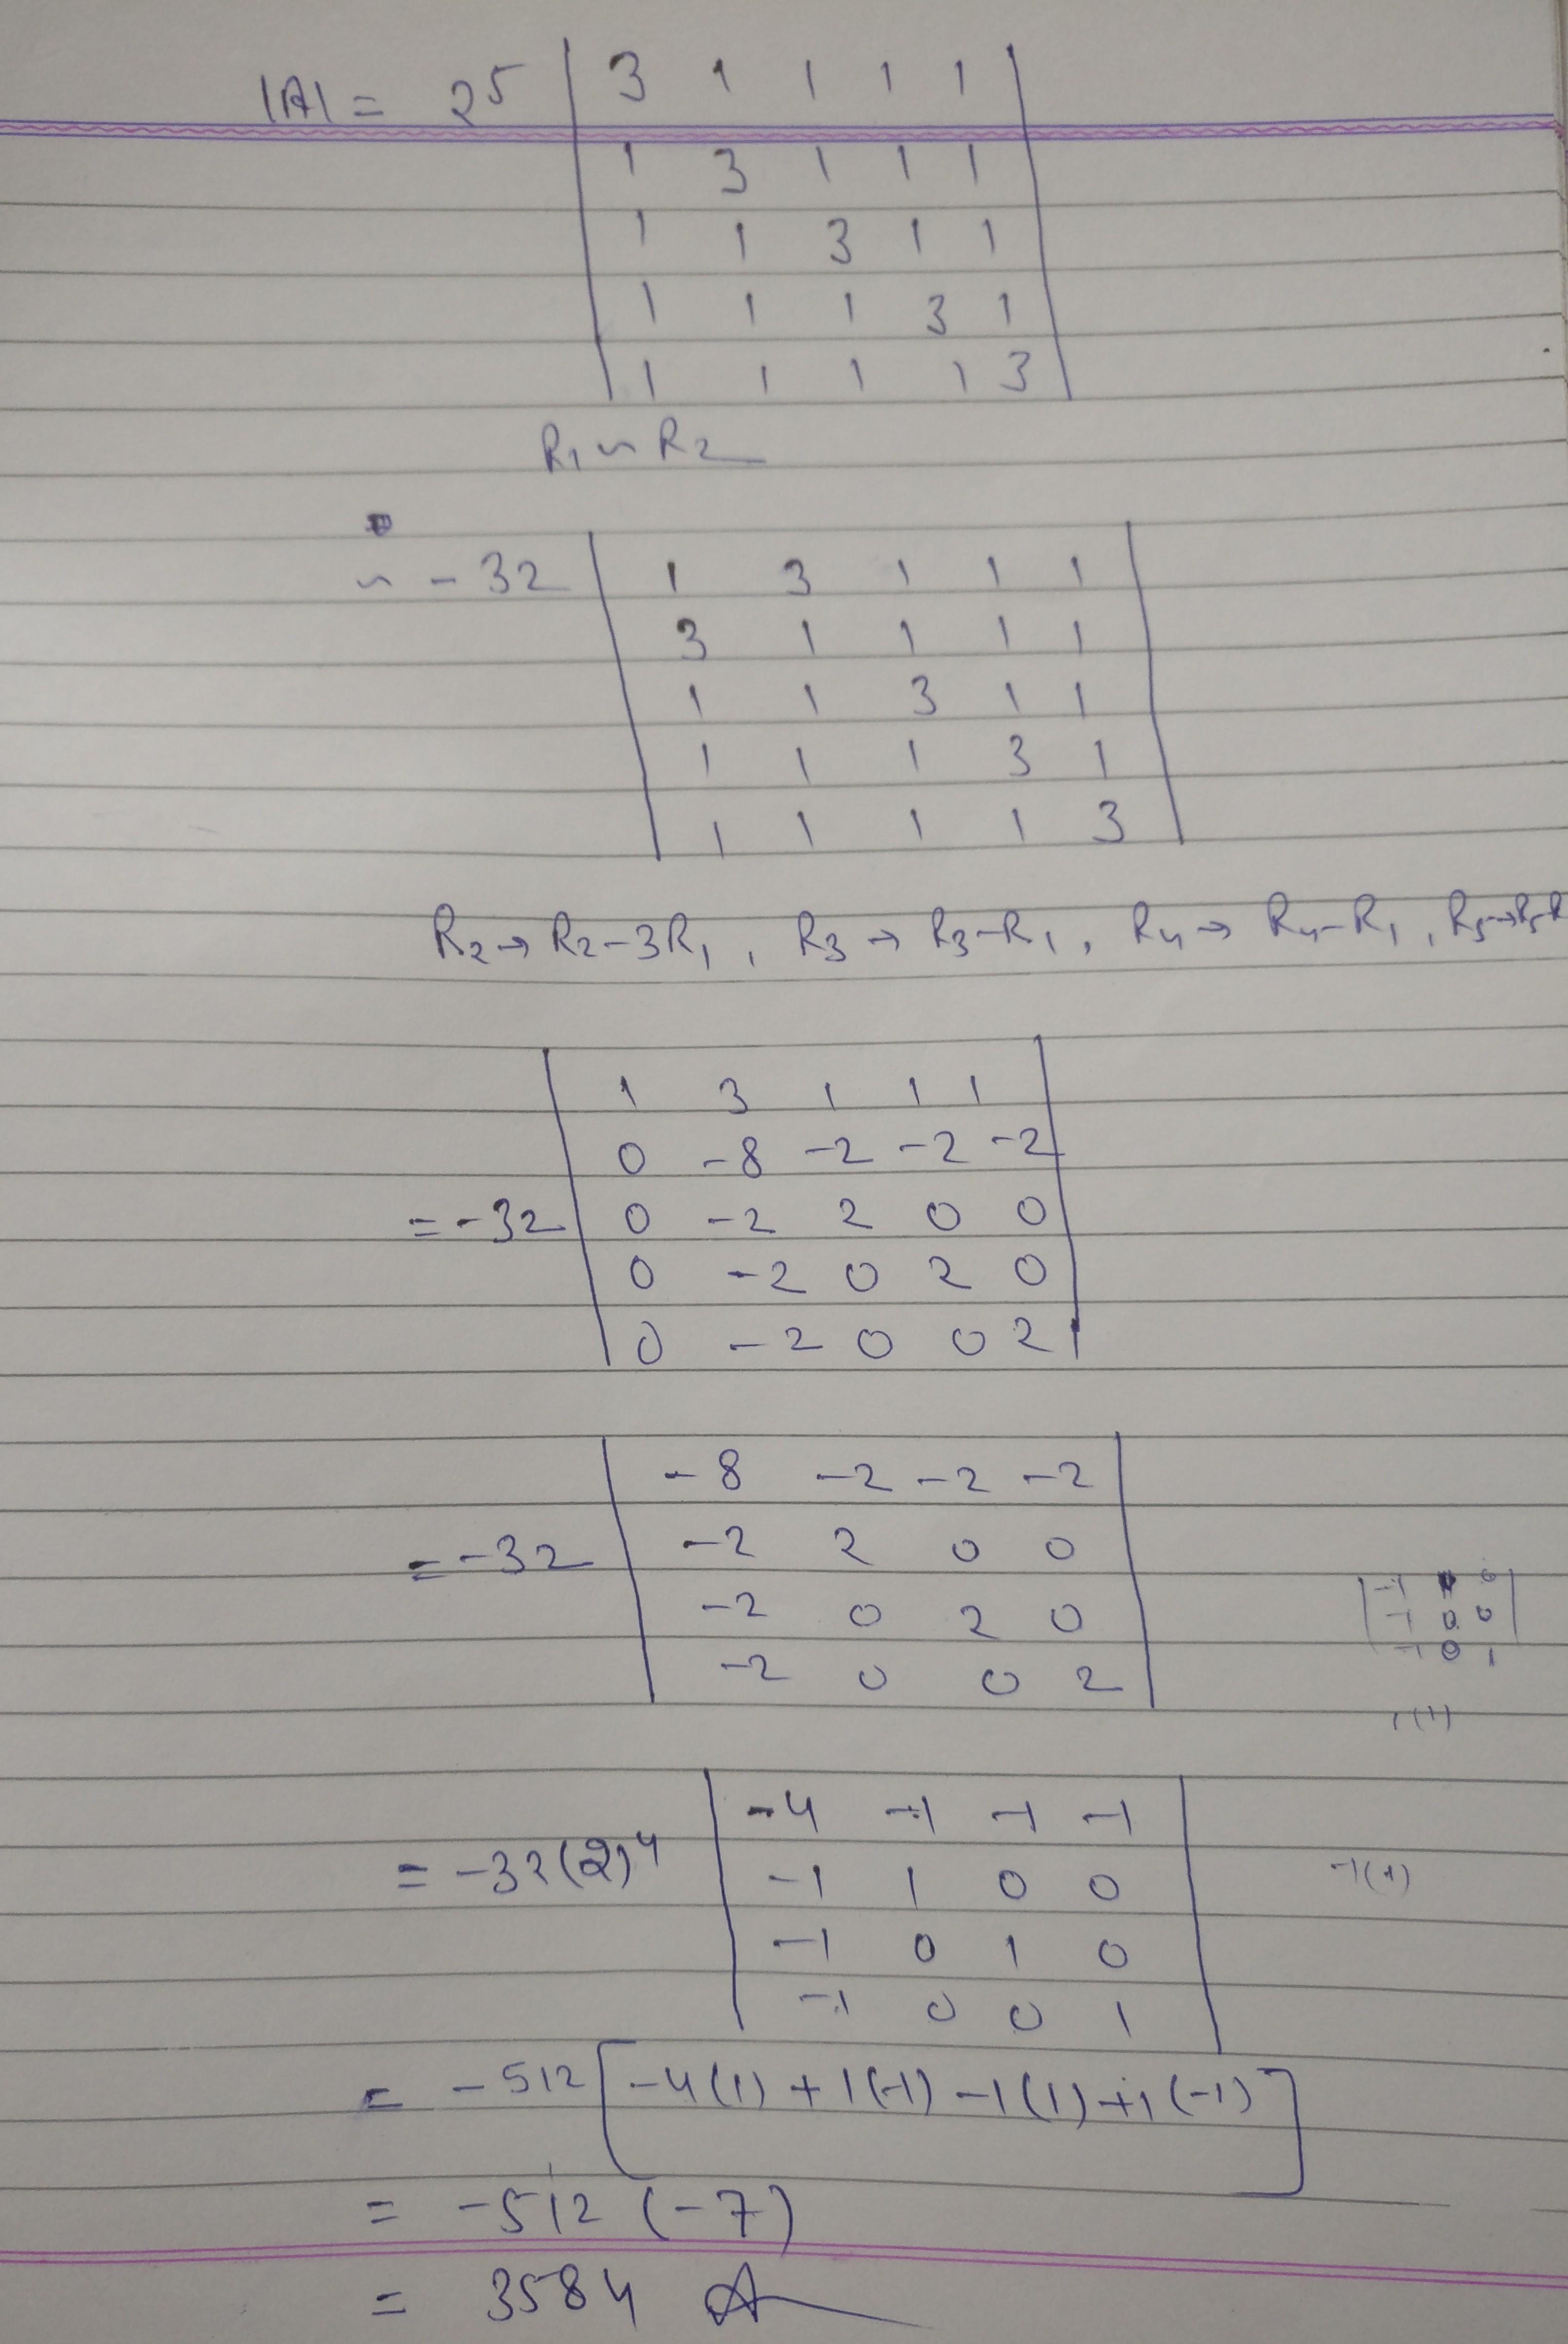 |A| = 2⁵ | 3 1 1 1 1 |
| 1 3 1 1 1 |
| 1 1 3 1 1 |
| 1 1 1 3 1 |
| 1 1 1 1 3 |
R₁ ~ R₂
~ -32 | 1 3 1 1 1 |
| 3 1 1 1 1 |
| 1 1 3 1 1 |
| 1 1 1 3 1 |
| 1 1 1 1 3 |
R₂ → R₂-3R₁, R₃ → R₃-R₁, R₄ → R₄-R₁, R₅→R₅-R
| 1 3 1 1 1 |
| 0 -8 -2 -2 -2 |
= -32 | 0 -2 2 0 0 |
| 0 -2 0 2 0 |
| 0 -2 0 0 2 |
| -8 -2 -2 -2 |
= -32 | -2 2 0 0 |
| -2 0 2 0 |
| -2 0 0 2 |
| -1 0 |
| -1 0 0 |
| -1 0 1 |
1(1)
| -4 -1 -1 -1 |
= -32(2)⁴ | -1 1 0 0 |
| -1 0 1 0 |
| -1 0 0 1 |
-1(1)
= -512 [-4(1) + 1(-1) -1(1) +1(-1)]
= -512 (-7)
= 3584